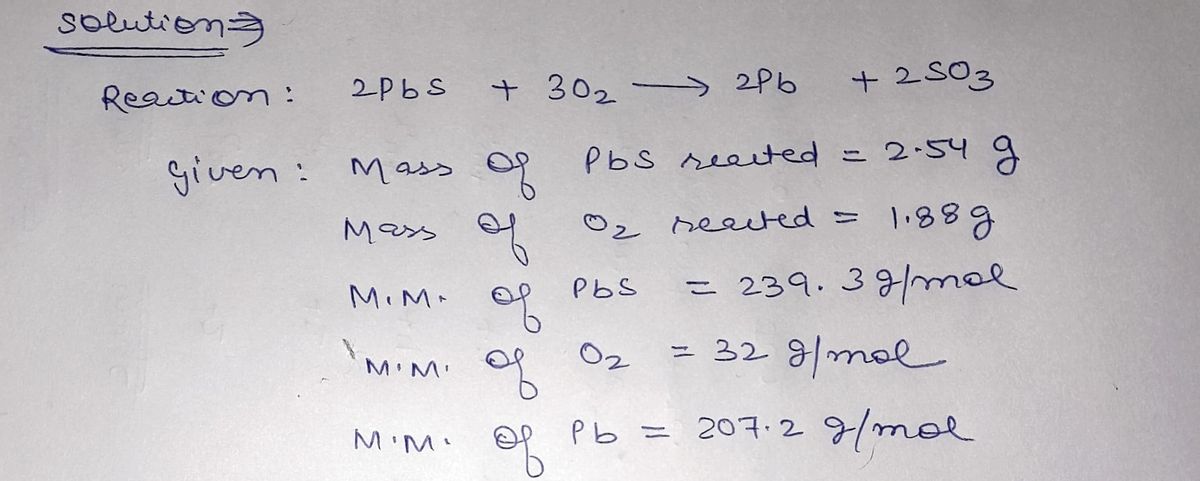 Solution ⇒
Reaction : 2PbS + 3O₂ → 2Pb + 2SO₃
Given : Mass of PbS reacted = 2.54 g
Mass of O₂ reacted = 1.88 g
M.M. of PbS = 239.3 g/mol
M.M. of O₂ = 32 g/mol
M.M. of Pb = 207.2 g/mol